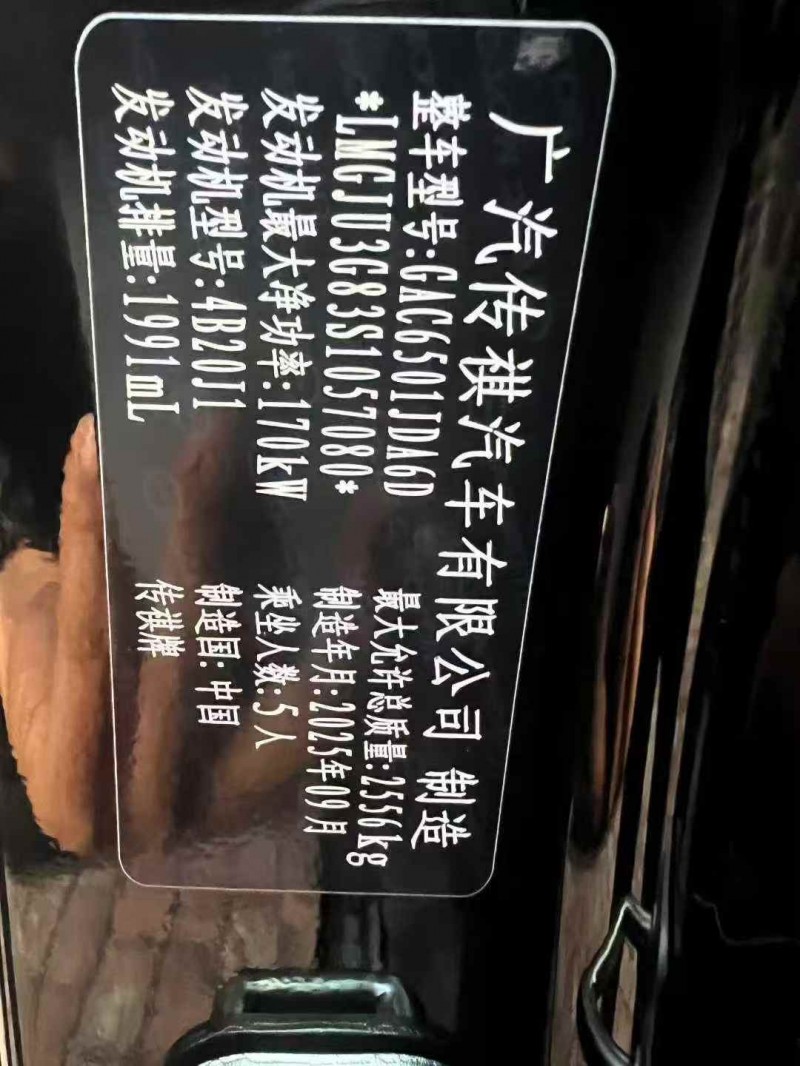 广汽传祺汽车有限公司 制造
整车型号:GAC6501JDA6D 最大允许总质量:2556kg
*LMGJU3G83S1057080* 制造年月:2025年09月
发动机最大净功率:170kW 乘坐人数:5人
发动机型号:4B20J1 制造国:中国
发动机排量:1991mL 传祺牌